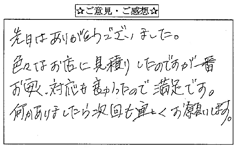 ☆ご意見・ご感想☆
先日はありがとうございました。
色々なお店に見積りしたのですが一番
お安く、対応も良かったので満足です。
何かありましたら次回も宜しくお願いします